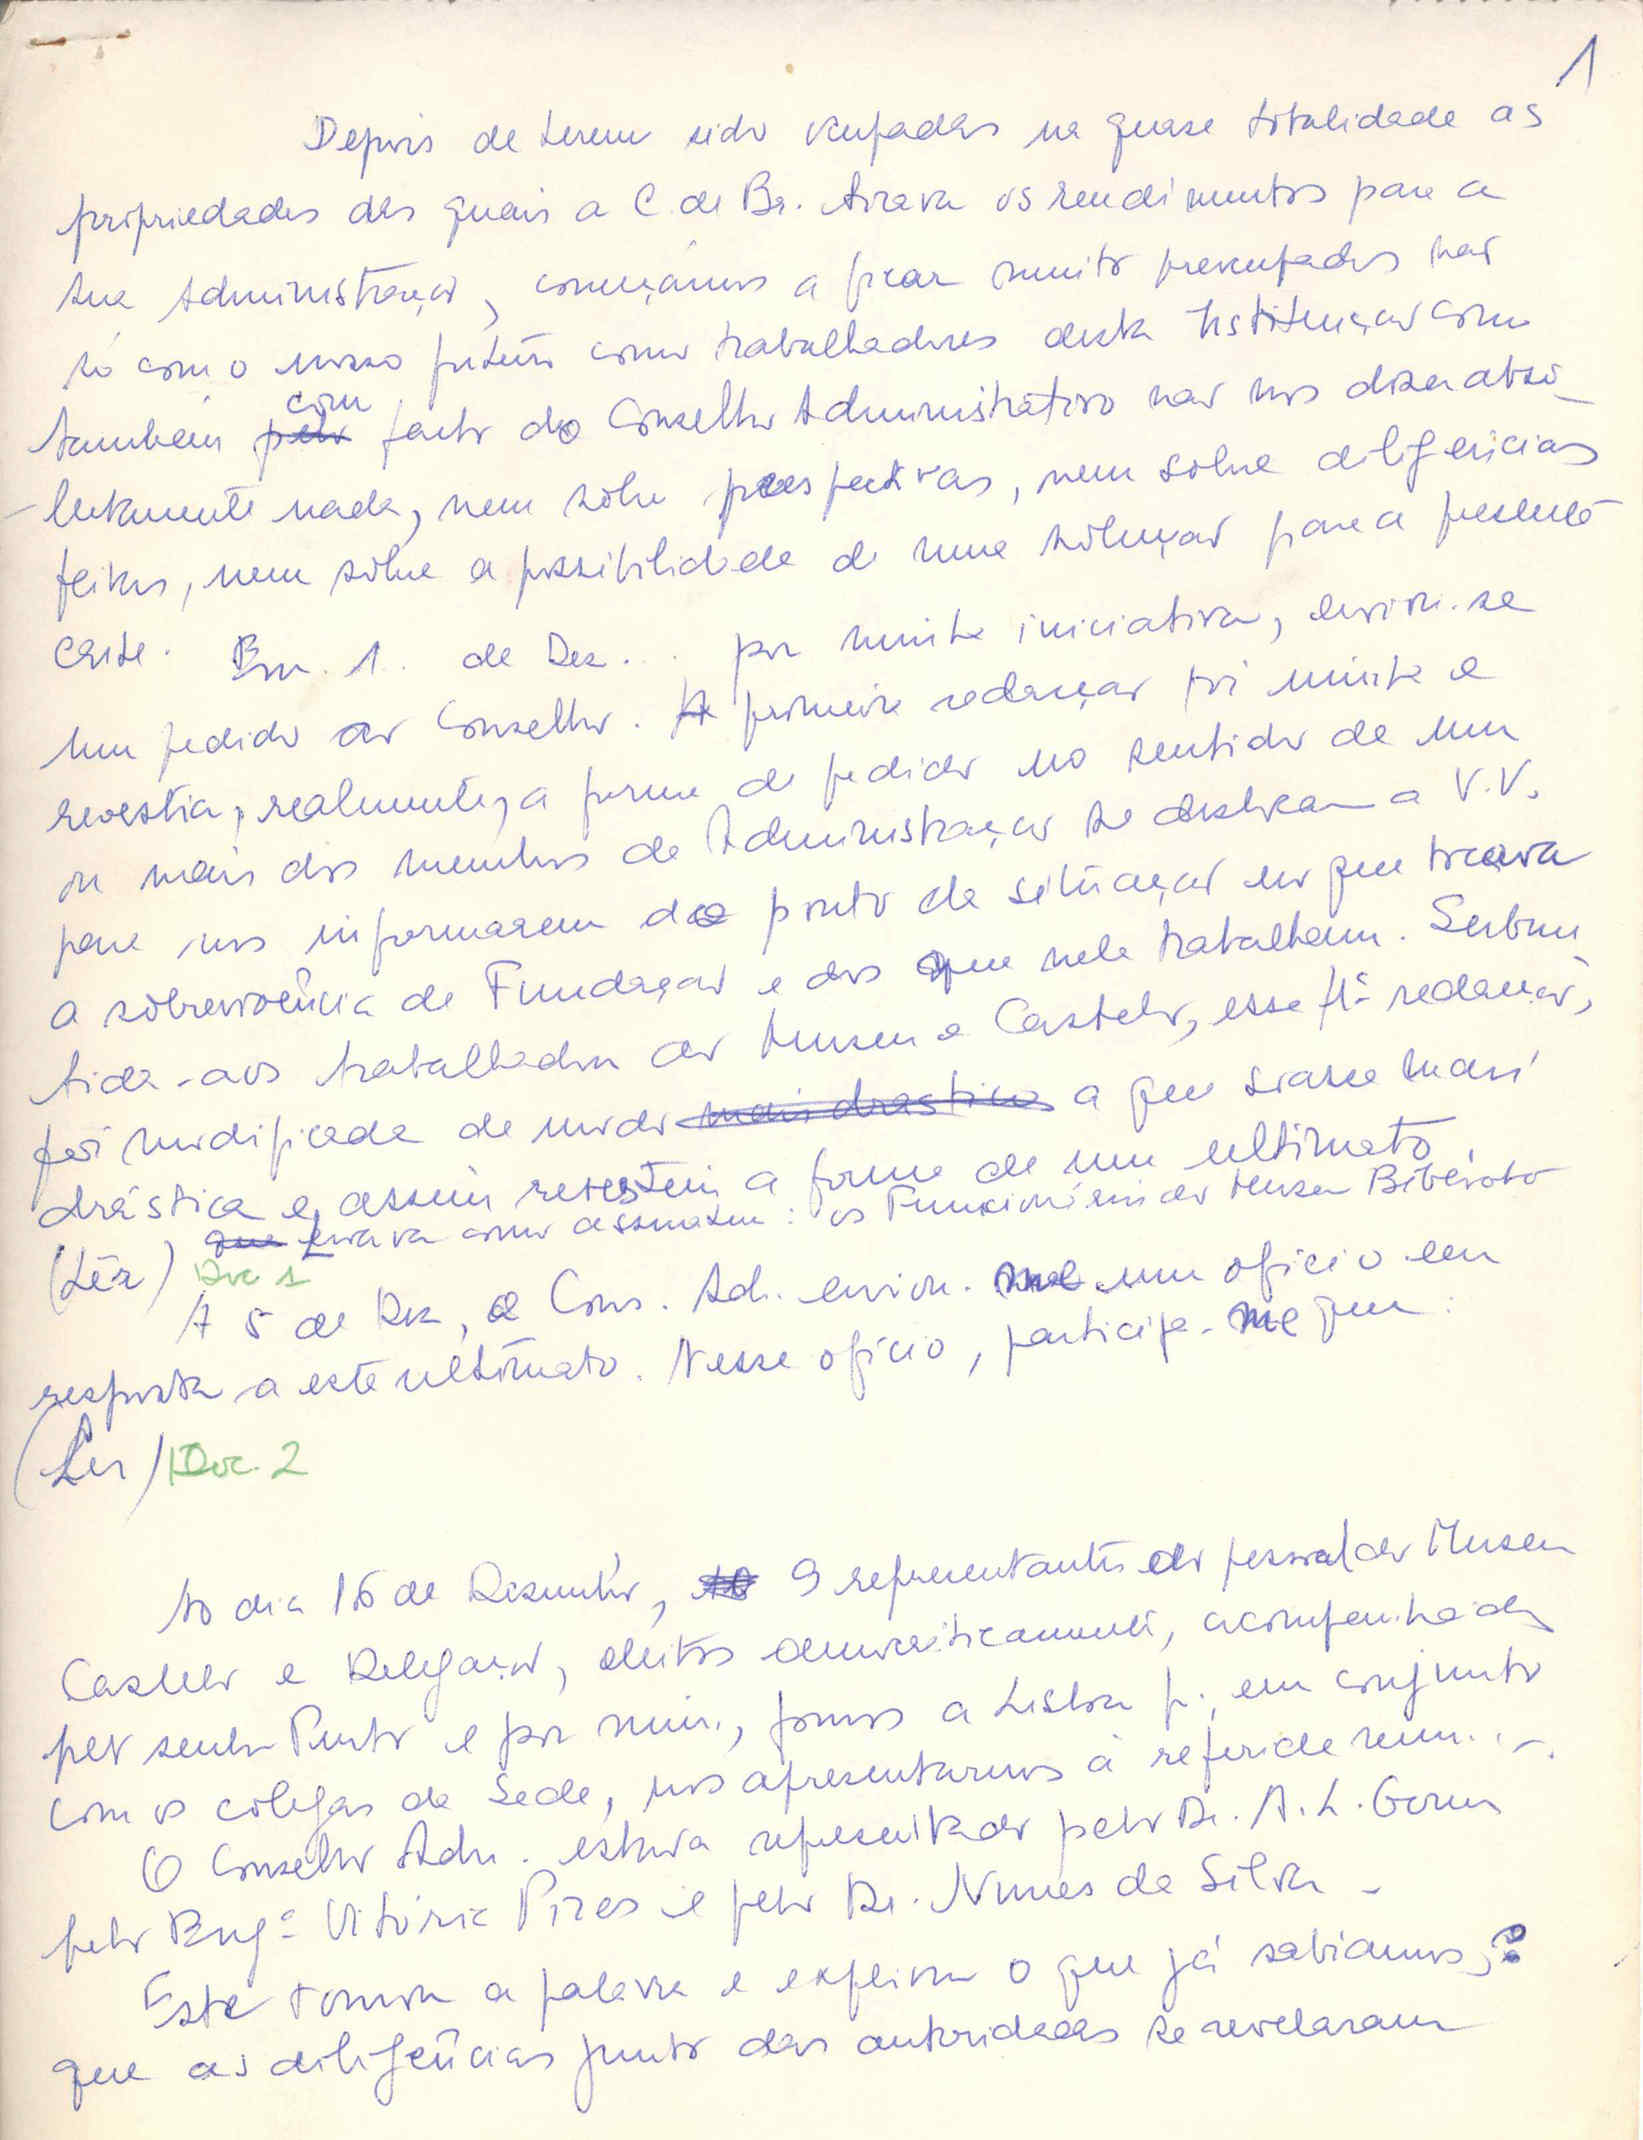 1
Depois de terem sido ocupadas na quase totalidade as
propriedades das quais a C. de Br. tirava os rendimentos para a
sua Administração, começámos a ficar muito preocupados não
só com o nosso futuro como trabalhadores desta Instituição como
também pelo com facto do Conselho Administrativo não nos dizer abso-
-lutamente nada, nem sobre perspectivas, nem sobre diligências
feitas, nem sobre a possibilidade de uma solução para a presente
crise. Em 1. de Dez... por minha iniciativa, enviou-se
um pedido ao Conselho. A primeira redacção foi minha e
revestia, realmente, a forma de pedido no sentido de um
ou mais dos membros da Administração se deslocar a V.V.
para nos informarem do ponto da situação no que tocava
a sobrevivência da Fundação e dos que nela trabalham. Subme
tida-aos trabalhadores do Museu e Castelo, essa 1ª redacção,
foi modificada de modo mais drastico a que ficasse mais
drástica e, assim revestiu a forma de um ultimato
que levava como assinatura: os Funcionários do Museu Biblioteca
(Lêr) Doc 1
A 5 de Dez, o Cons. Ad. enviou-me um oficio em
resposta a este ultimato. Nesse ofício, participa-me que:
(Ler) Doc. 2
No dia 16 de Dezembro, 9 representantes do pessoal do Museu
Castelo e Delegação, eleitos democraticamente, acompanhados
pelo senhor Pinto e por mim, fomos a Lisboa p., em conjunto
com os colegas da Sede, nos apresentarmos à referida reun...
O Conselho Adm. estava representado pelo Dr. A. L. Gomes
pelo Engº Vitória Pires e pelo Dr. Nunes da Silva -
Este tomou a palavra e explicou o que já sabiamos;
que as diligências junto das autoridades se revelaram